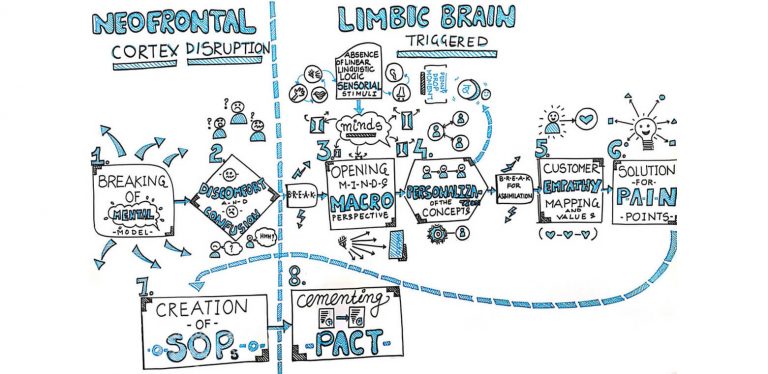 NEOFRONTAL
CORTEX DISRUPTION
LIMBIC BRAIN
TRIGGERED
ABSENCE
OF LINEAR
LINGUISTIC
LOGIC
SENSORIAL
STIMULI
PENNY
DROP
MOMENT
minds
1.
BREAKING
OF
MENTAL
-MODEL-
2.
DISCOMFORT
A-N-D
CONFUSION
?
HMM!
B-R-E-A-K
3.
OPENING
M-I-N-D-S
MACRO
PERSPECTIVE
4.
PERSONALIZA-
TION
OF THE
CONCEPTS
B-R-E-A-K
FOR
ASSIMILATION
5.
CUSTOMER
EMPATHY
MAPPING
AND
VALUES
6.
SOLUTION
-FOR-
PAIN
-POINTS-
7.
CREATION
-OF-
SOPs
8.
cementing
PACT